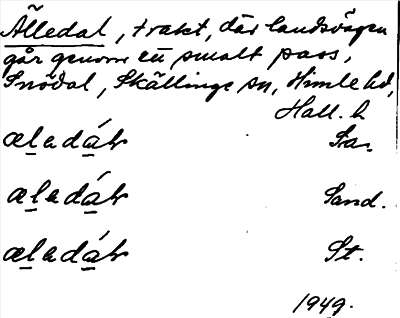 Älledal, trakt, där landsvägen
går genom ett smalt pass,
Snödal, Skällinge sn, Himle hd,
Hall. l.
æladáɫ Fa.
æladáɫ Sand.
æladáɫ St.
1949.